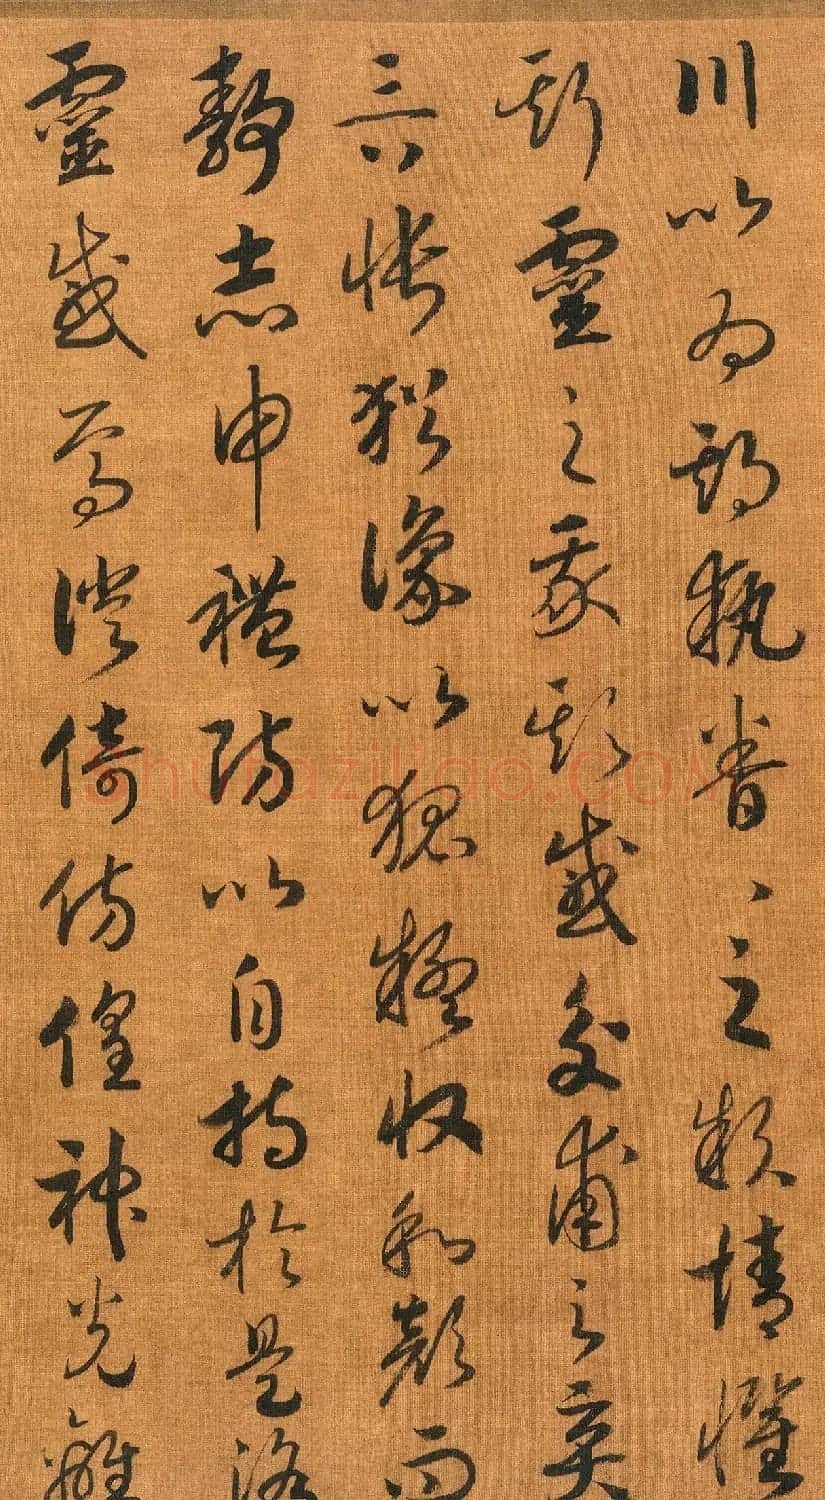 川以為期執眷〻之款情懼
斯靈之我欺感交甫之棄
言悵猶豫以狐疑收和顏而
靜志申禮防以自持於是洛
靈感焉徙倚仿偟神光離
shufaziliao.COM